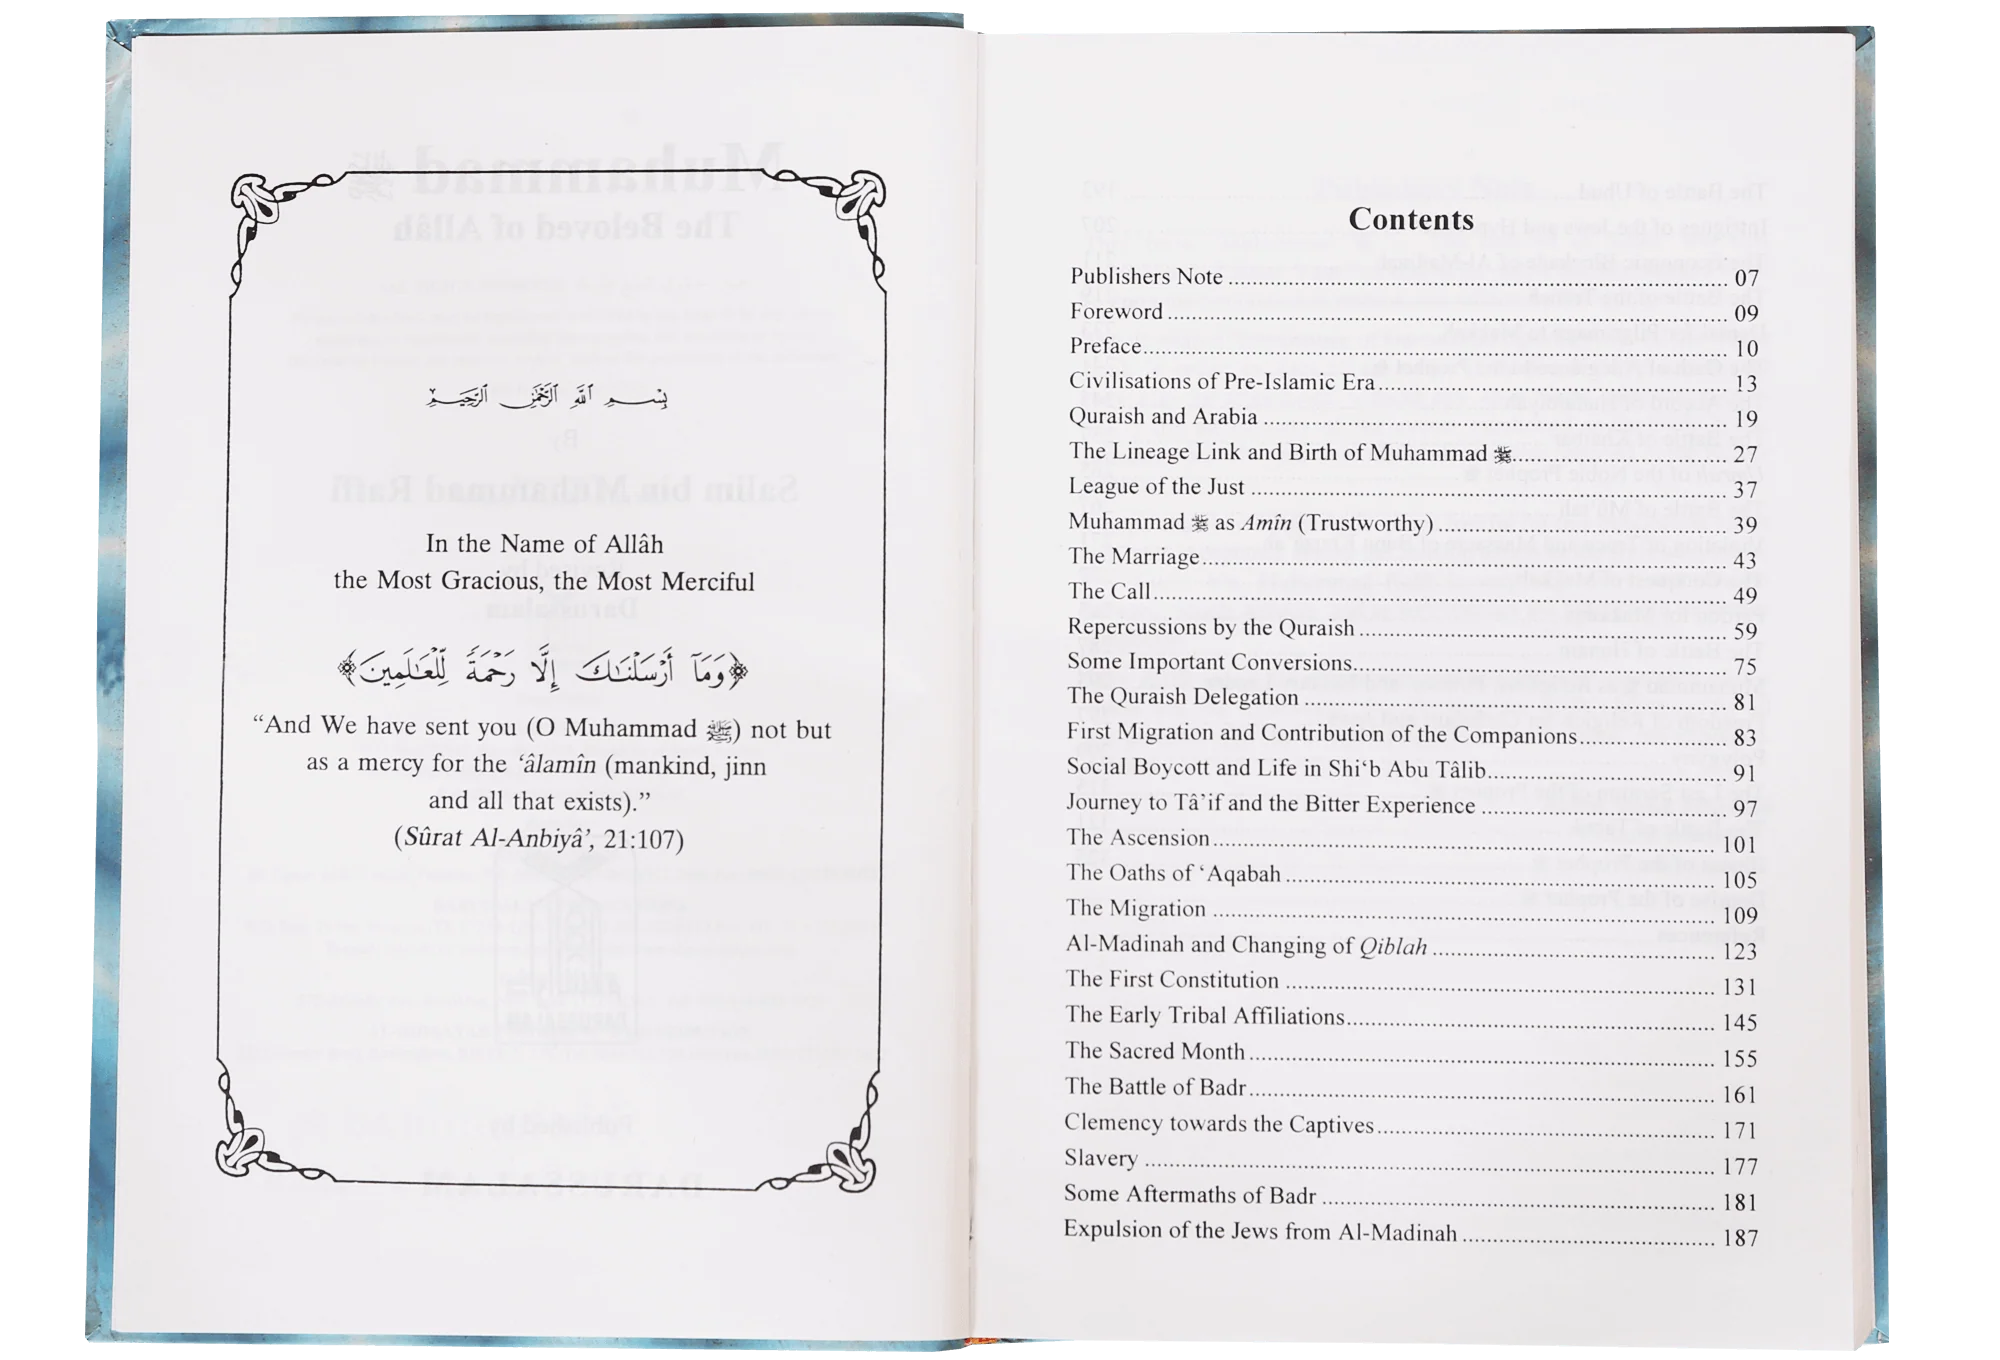 بِسْمِ ٱللَّهِ ٱلرَّحْمَٰنِ ٱلرَّحِيمِ
In the Name of Allâh
the Most Gracious, the Most Merciful
﴿وَمَآ أَرْسَلْنَٰكَ إِلَّا رَحْمَةً لِّلْعَٰلَمِينَ﴾
“And We have sent you (O Muhammad ﷺ) not but
as a mercy for the ‘âlamîn (mankind, jinn
and all that exists).”
(Sûrat Al-Anbiyâ’, 21:107)
Contents
Publishers Note ........ 07
Foreword ........ 09
Preface ........ 10
Civilisations of Pre-Islamic Era ........ 13
Quraish and Arabia ........ 19
The Lineage Link and Birth of Muhammad ﷺ ........ 27
League of the Just ........ 37
Muhammad ﷺ as Amîn (Trustworthy) ........ 39
The Marriage ........ 43
The Call ........ 49
Repercussions by the Quraish ........ 59
Some Important Conversions ........ 75
The Quraish Delegation ........ 81
First Migration and Contribution of the Companions ........ 83
Social Boycott and Life in Shi‘b Abu Tâlib ........ 91
Journey to Tâ’if and the Bitter Experience ........ 97
The Ascension ........ 101
The Oaths of ‘Aqabah ........ 105
The Migration ........ 109
Al-Madinah and Changing of Qiblah ........ 123
The First Constitution ........ 131
The Early Tribal Affiliations ........ 145
The Sacred Month ........ 155
The Battle of Badr ........ 161
Clemency towards the Captives ........ 171
Slavery ........ 177
Some Aftermaths of Badr ........ 181
Expulsion of the Jews from Al-Madinah ........ 187